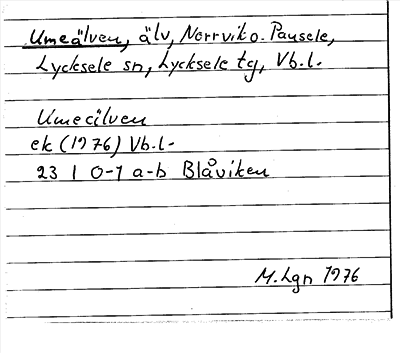 Umeälven, älv, Norrvik o. Pausele,
Lycksele sn, Lycksele tg, Vb.l.
Umeälven
ek (1976) Vb.l.
23 I 0-1 a-b Blåviken
M.Lgn 1976